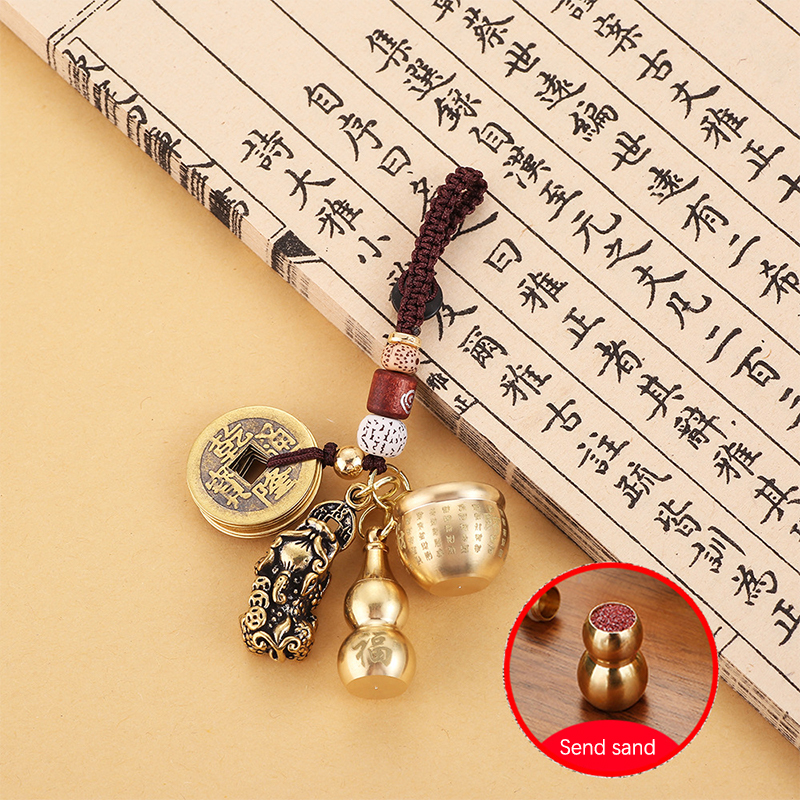 謹案古文雅正十
蔡世遠編世遠有二希
集選錄自漢至元之文凡二百三
自序曰名曰雅正者其辭雅其
詩大雅小及爾雅古註疏皆訓為正
乾隆通寶
福
Send sand